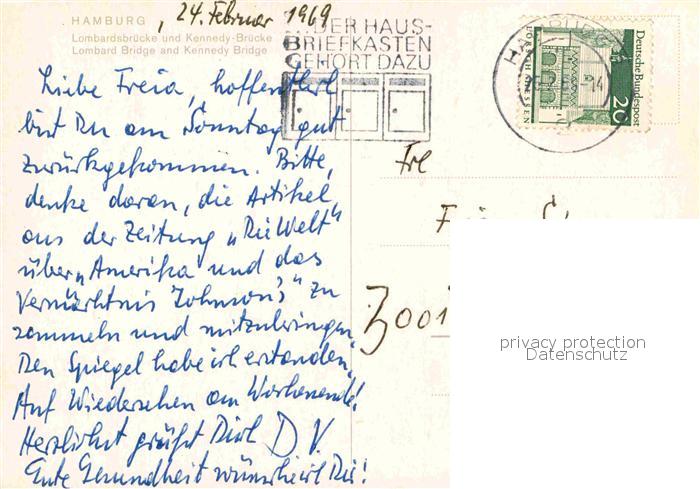 HAMBURG , 24. Februar 1969
Lombardsbrücke und Kennedy-Brücke
Lombard Bridge and Kennedy Bridge
...DER HAUS-
BRIEFKASTEN
GEHÖRT DAZU
HAMBURG
-14
Deutsche Bundespost
20
LORSCH/HESSEN
Liebe Freia, hoffentlich
bist Du am Sonntag gut
zurückgekommen. Bitte,
denke daran, die Artikel
aus der Zeitung „Die Welt"
über „Amerika und das
Vermächtnis Johnson's" zu
sammeln und mitzubringen.
Den Spiegel habe ich erstanden.
Auf Wiedersehen am Wochenende!
Herzlichst grüßt Dich D. V.
Gute Gesundheit wünsche ich Dir!
Frl
3001
privacy protection
Datenschutz